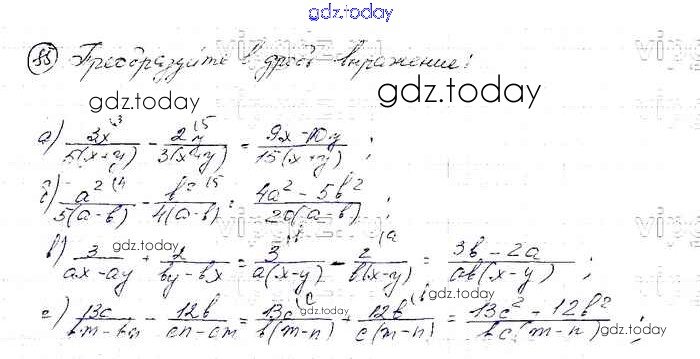 gdz.today
85 Преобразуйте в дробь выражение:
gdz.today
gdz.today
а) 3x/5(x+y) − 2y/3(x+y) = 9x − 10y/15(x+y) ;
б) a²/5(a−b) − b²/4(a−b) = 4a² − 5b²/20(a−b) ;
в) 3/ax−ay + 2/by−bx = 3/a(x−y) − 2/b(x−y) = 3b − 2a/ab(x−y) ;
gdz.today
gdz.today
г) 13c/bm−bn − 12b/cn−cm = 13c/b(m−n) + 12b/c(m−n) = 13c² + 12b²/bc(m−n) ;
gdz.today
gdz.today